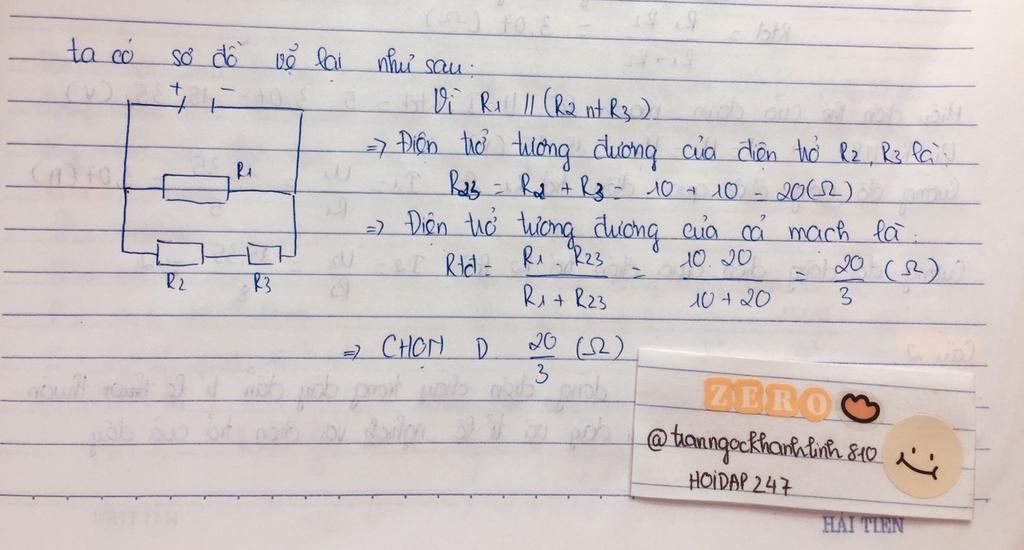 ta có sơ đồ vẽ lại như sau:
+ -
R1
R2 R3
Vì R1 // (R2 nt R3).
=> Điện trở tương đương của điện trở R2, R3 là:
R23 = R2 + R3 = 10 + 10 = 20(Ω)
=> Điện trở tương đương của cả mạch là:
Rtđ = R1 . R23 / R1 + R23 = 10 . 20 / 10 + 20 = 20 / 3 (Ω)
=> CHỌN D 20 / 3 (Ω)
ZERO
@tranngockhanhlinh810
HOIDAP247
HẢI TIẾN